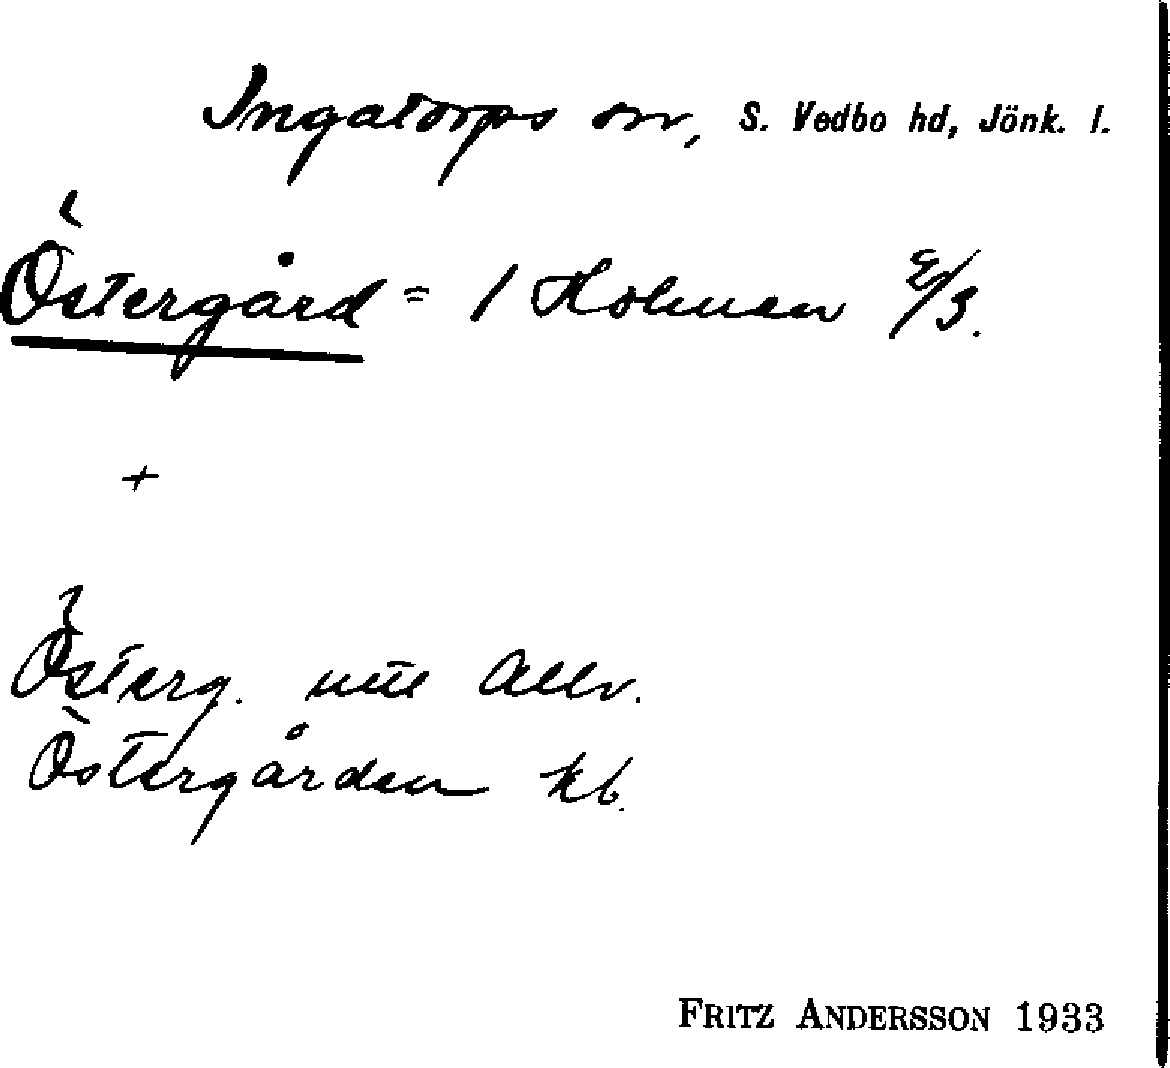 Ingatorps sn, S. Vedbo hd, Jönk. l.
Östergård = 1 Holmen 2/3.
+
Österg. utt Allv.
Östergården kb.
FRITZ ANDERSSON 1933